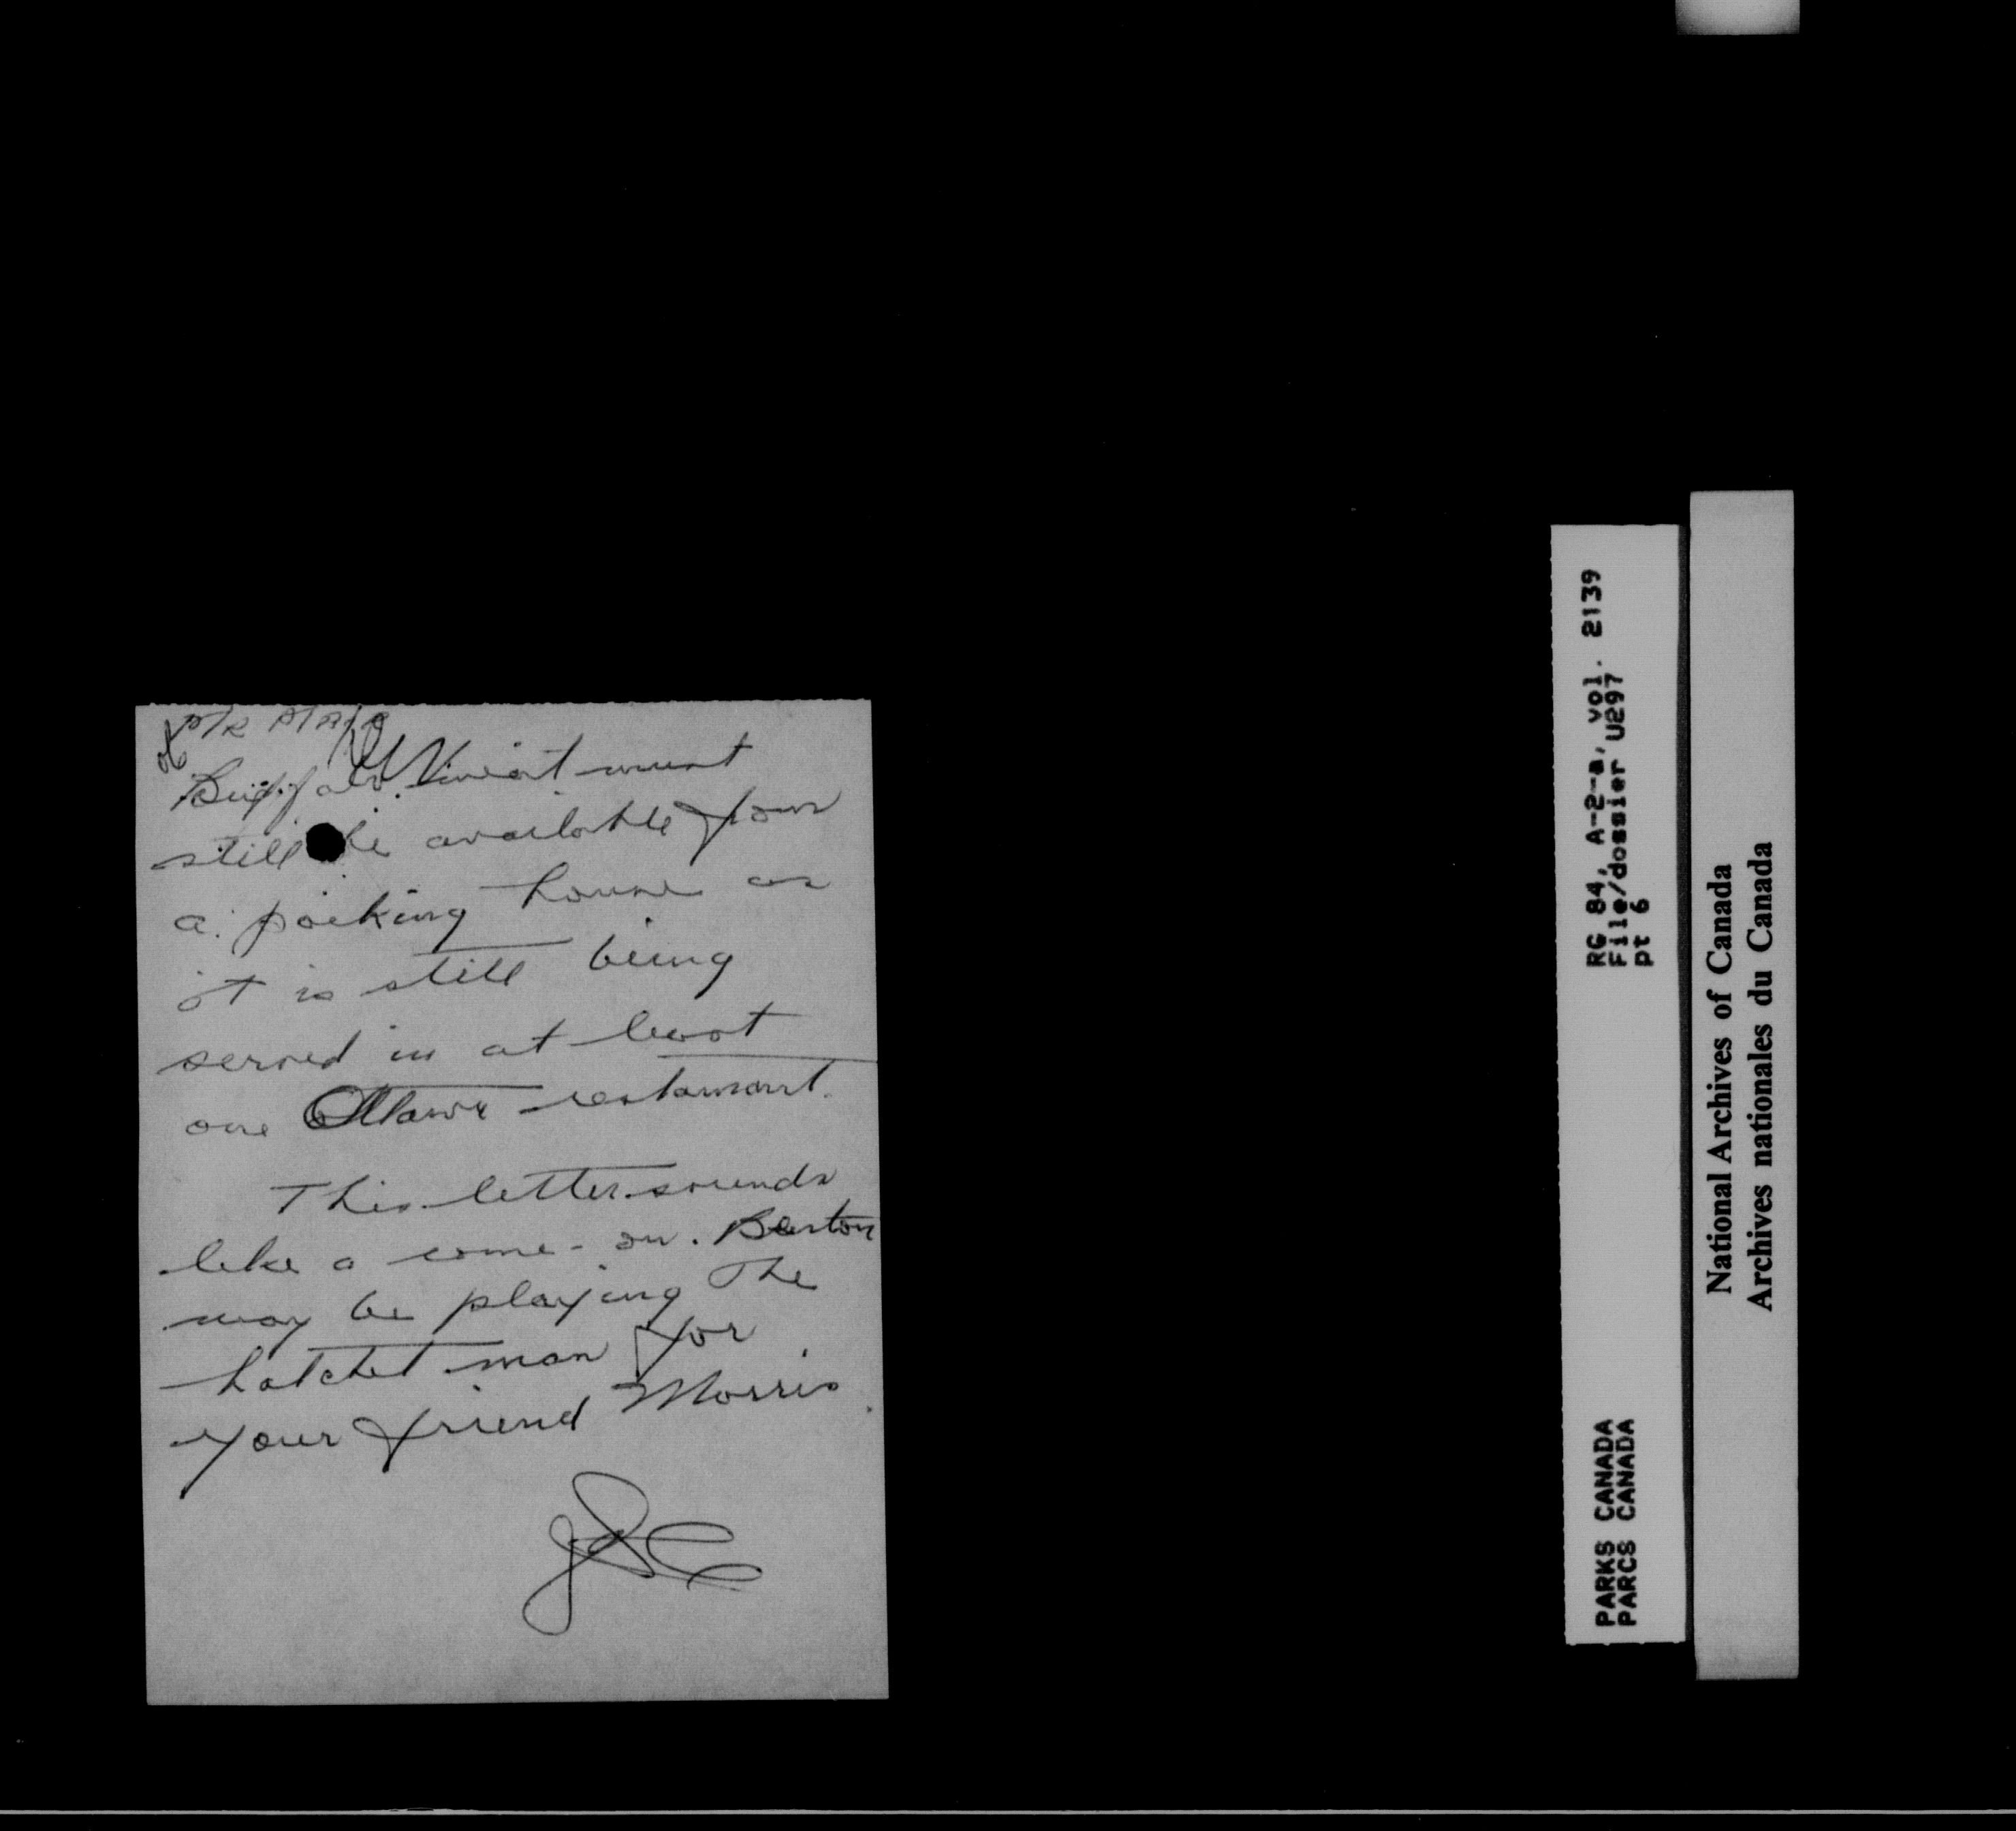 P/R
Buffalo meat must
still be available from
a packing house as
it is still being
served in at least
one Ottawa restaurant.
This letter sounds
like a come-on. Berton
may be playing the
hatchet man for
your friend Morris.
RG 84, A-2-a, vol. 2139
File/dossier U297
pt 6
PARKS CANADA
PARCS CANADA
National Archives of Canada
Archives nationales du Canada